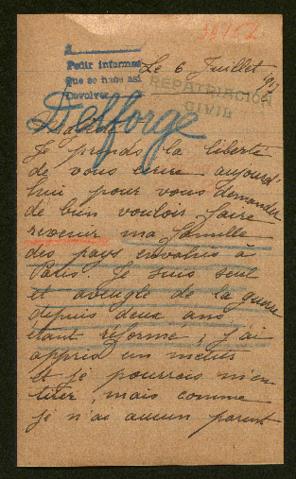 A
Pedir informes
Que se hace así
Devolver
REPATRIACION
CIVIL
Le 6 Juillet 1917
Defforge
Je prends la liberté
de vous écrire aujourd'
hui pour vous demander
de bien vouloir faire
revenir ma famille
des pays envahis à
Paris. Je suis seul
et aveugle de la guerre
depuis deux ans
étant réformé, j'ai
appris un métier
et je pourrais m'en
tirer, mais comme
je n'ai aucun parent